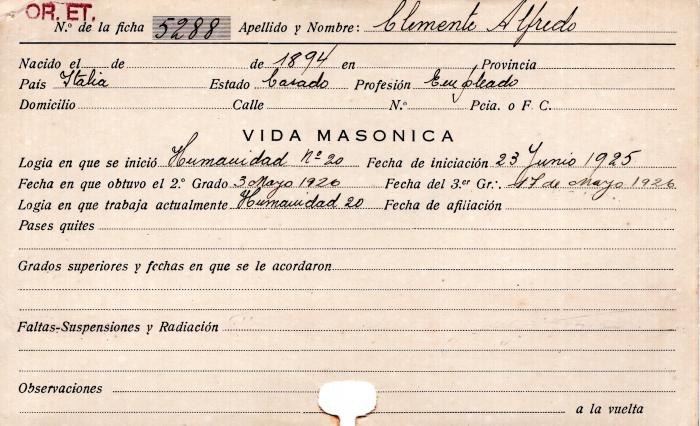 OR. ET.
N.º de la ficha 5288 Apellido y Nombre: Clemente Alfredo
Nacido el de de 1894 en Provincia
País Italia Estado Casado Profesión Empleado
Domicilio Calle N.º Pcia. o F. C.
VIDA MASONICA
Logia en que se inició Humanidad Nº 20 Fecha de iniciación 23 Junio 1925
Fecha en que obtuvo el 2.º Grado 3 Mayo 1926 Fecha del 3.er Gr. 17 de Mayo 1926
Logia en que trabaja actualmente Humanidad 20 Fecha de afiliación
Pases quites
Grados superiores y fechas en que se le acordaron
Faltas-Suspensiones y Radiación
Observaciones
a la vuelta